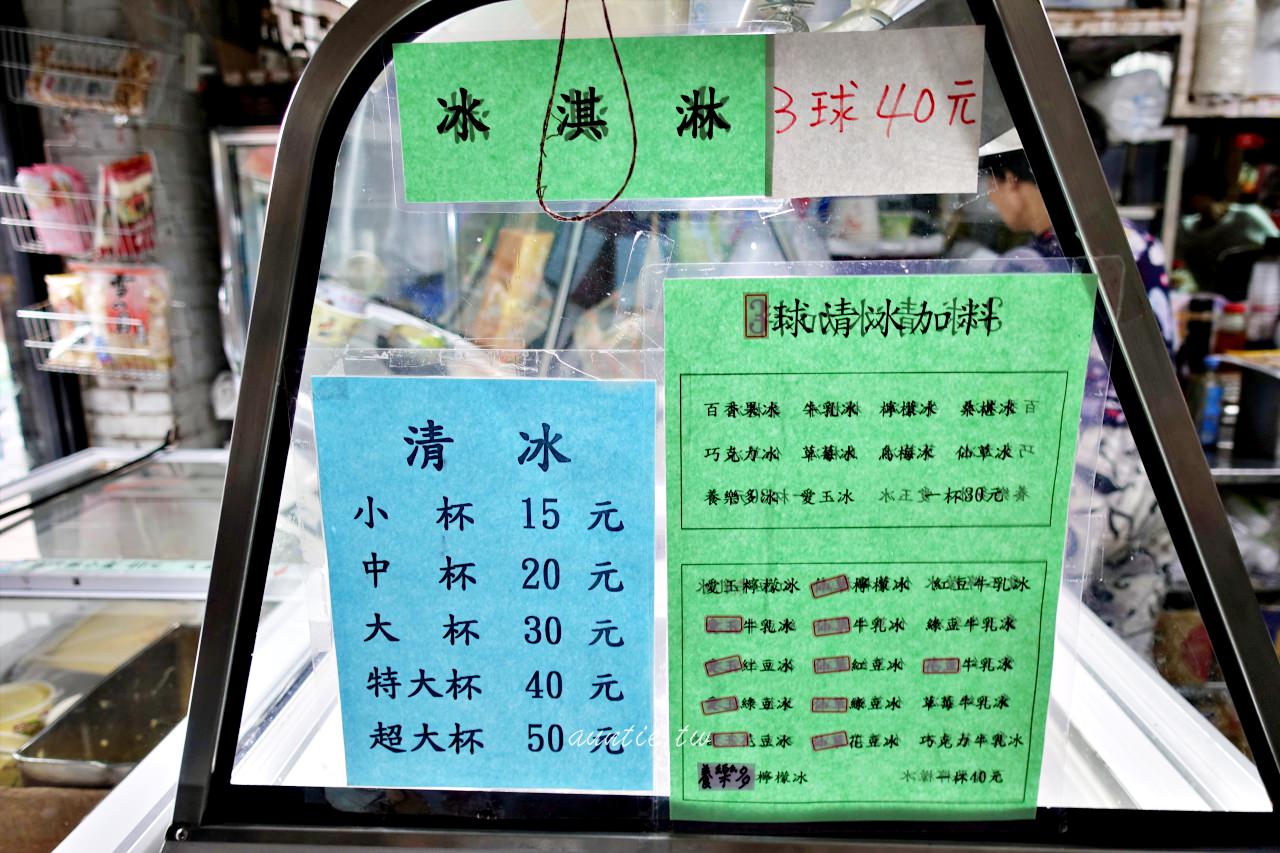 冰淇淋 3球40元
3球清冰加料
百香果冰 牛乳冰 檸檬冰 桑椹冰
巧克力冰 草莓冰 烏梅冰 仙草冰
養樂多冰 愛玉冰 一杯30元
愛玉檸檬冰 檸檬冰 紅豆牛乳冰
牛乳冰 牛乳冰 綠豆牛乳冰
紅豆冰 紅豆冰 花豆牛乳冰
綠豆冰 綠豆冰 草莓牛乳冰
花豆冰 花豆冰 巧克力牛乳冰
養樂多檸檬冰 一杯40元
清冰
小杯 15元
中杯 20元
大杯 30元
特大杯 40元
超大杯 50元
auntie.tw